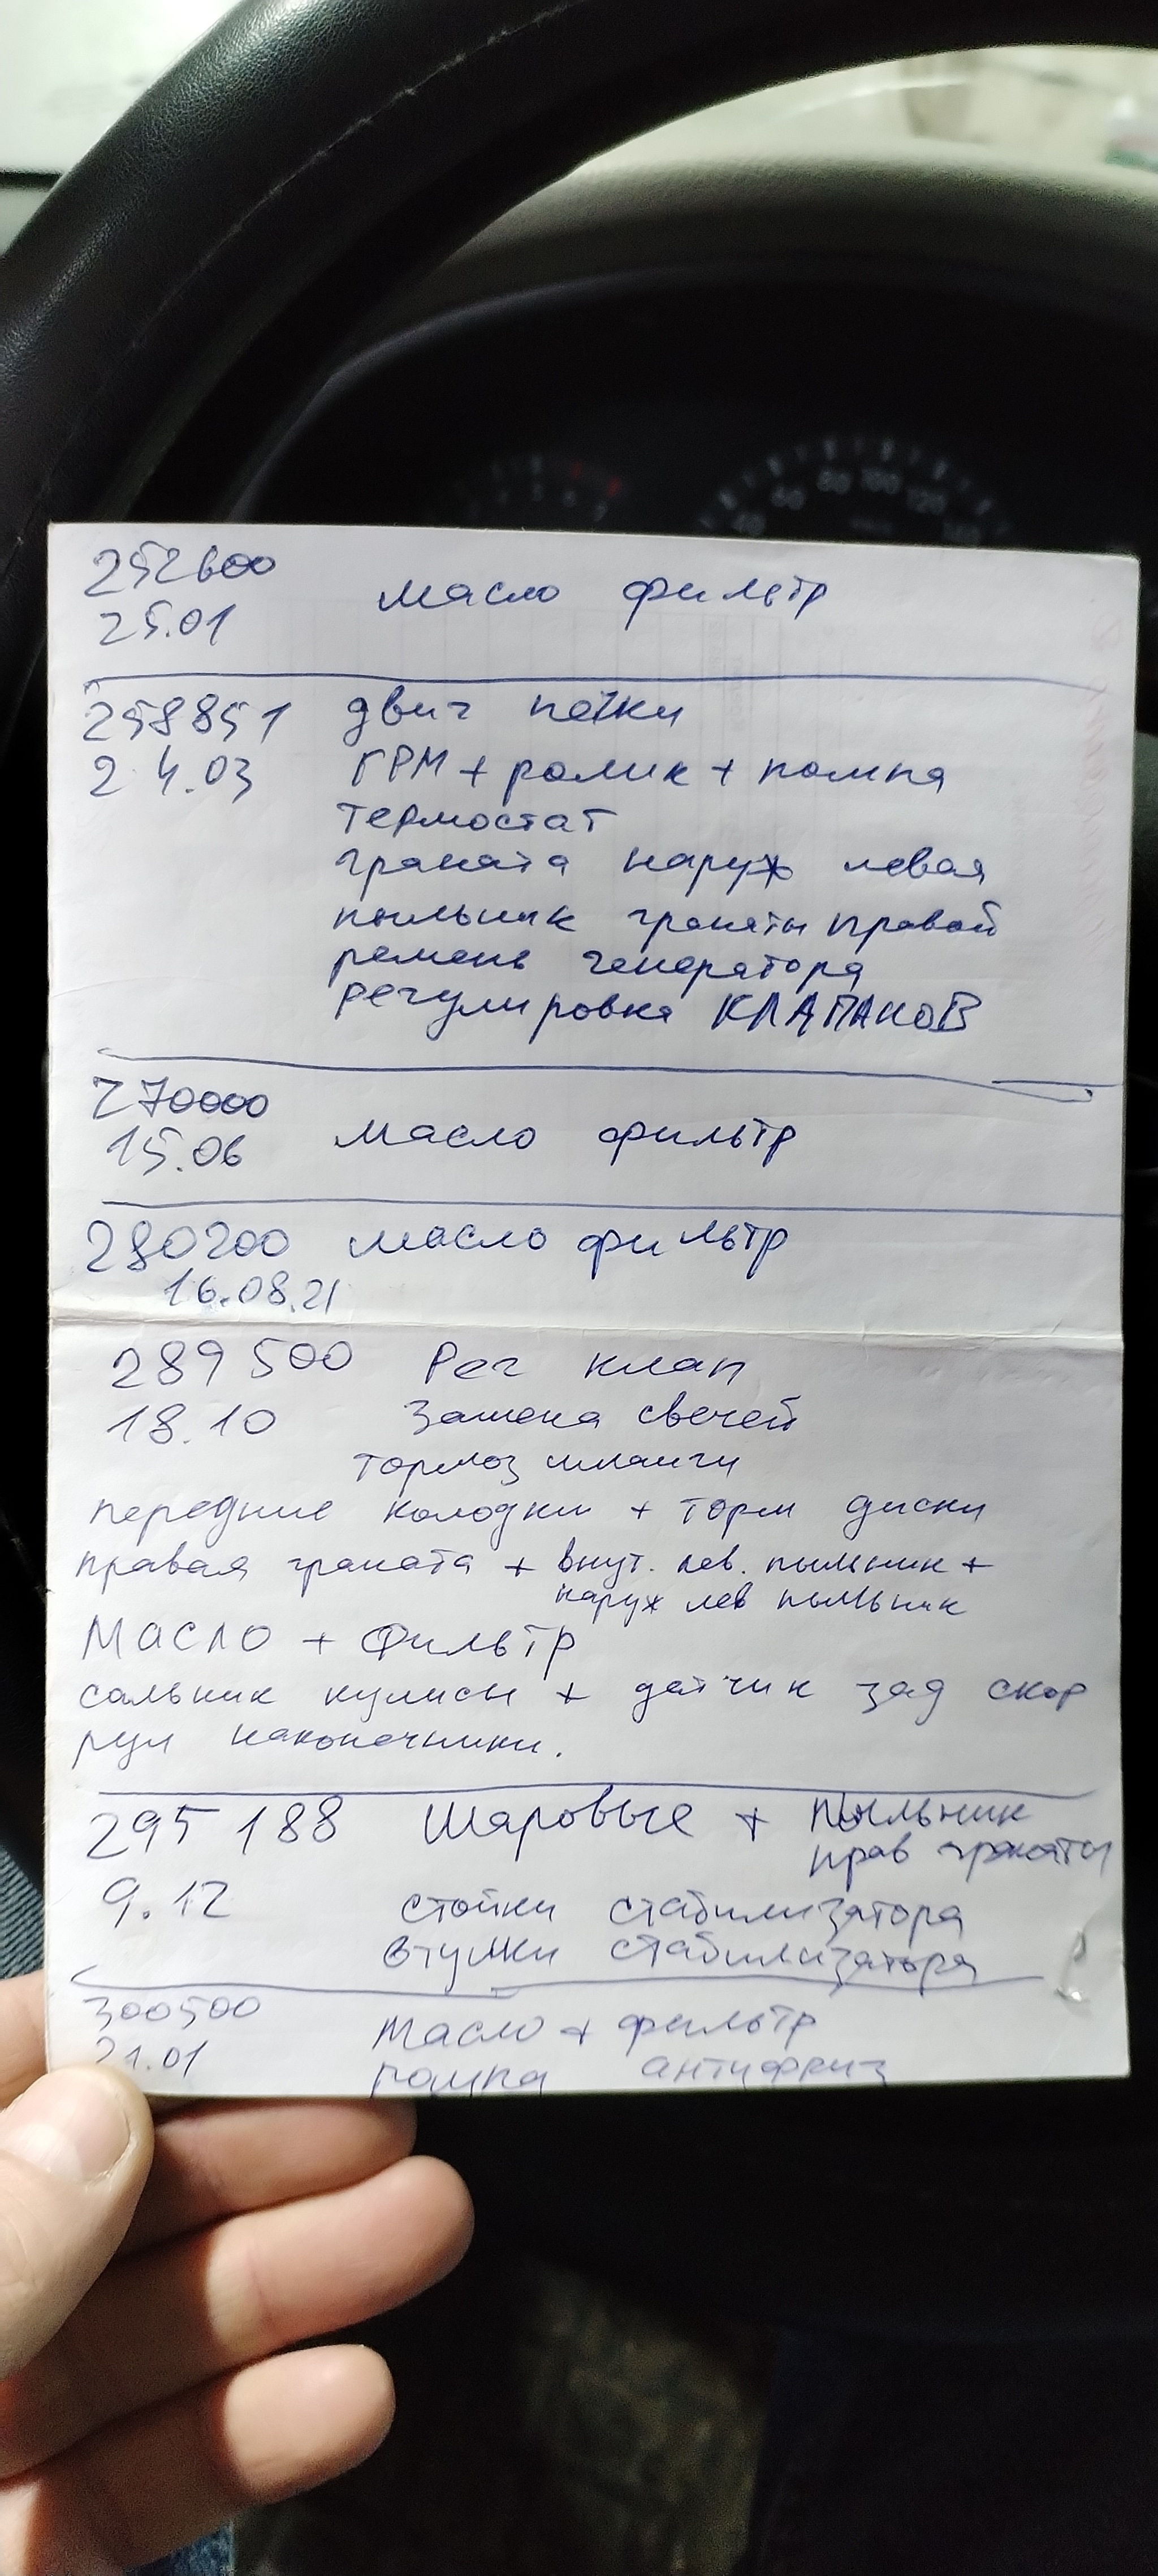 252600
масло фильтр
25.01
258851 двиг печки
24.03 ГРМ + ролик + помпа
термостат
граната наруж левая
пыльник гранаты правой
ремень генератора
регулировка КЛАПАНОВ
270000
15.06 масло фильтр
280200 масло фильтр
16.08.21
289500 Рег клап
18.10 Замена свечей
тормоз шланги
передние колодки + торм диски
правая граната + внут. лев. пыльник +
наруж лев пыльник
Масло + Фильтр
сальник кулисы + датчик зад скор
рул наконечники.
295 188 Шаровые + Пыльник
прав гранаты
9.12 стойки стабилизатора
втулки стабилизатора
300500 Масло + фильтр
21.01 помпа антифриз